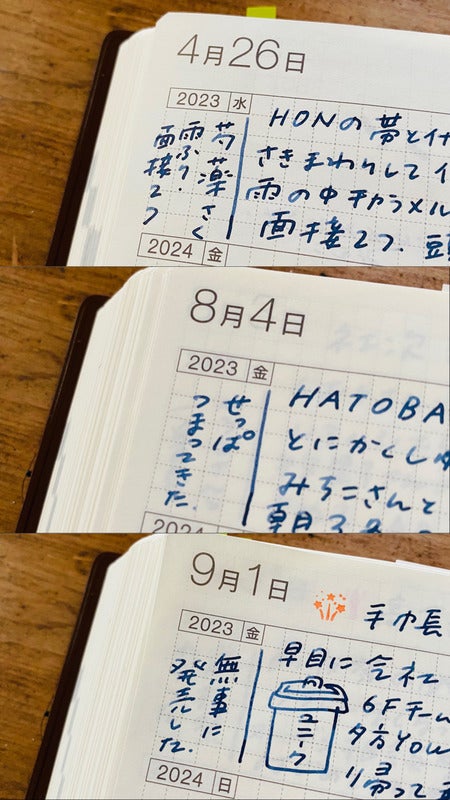 4月26日
2023 水
芍薬さく
雨ふり.
面接2つ
HONの夢と
さきまわりして
雨の中チャラメル
面接2つ.
2024 金
8月4日
2023 金
せっぱ
つまってきた.
HATOBA
とにかくし
みちこさんと
2024
9月1日
手巾長
2023 金
無事に
発売した.
早目に会社
ユニーク
6Fチーム
夕方YOU
り帰って
2024 日